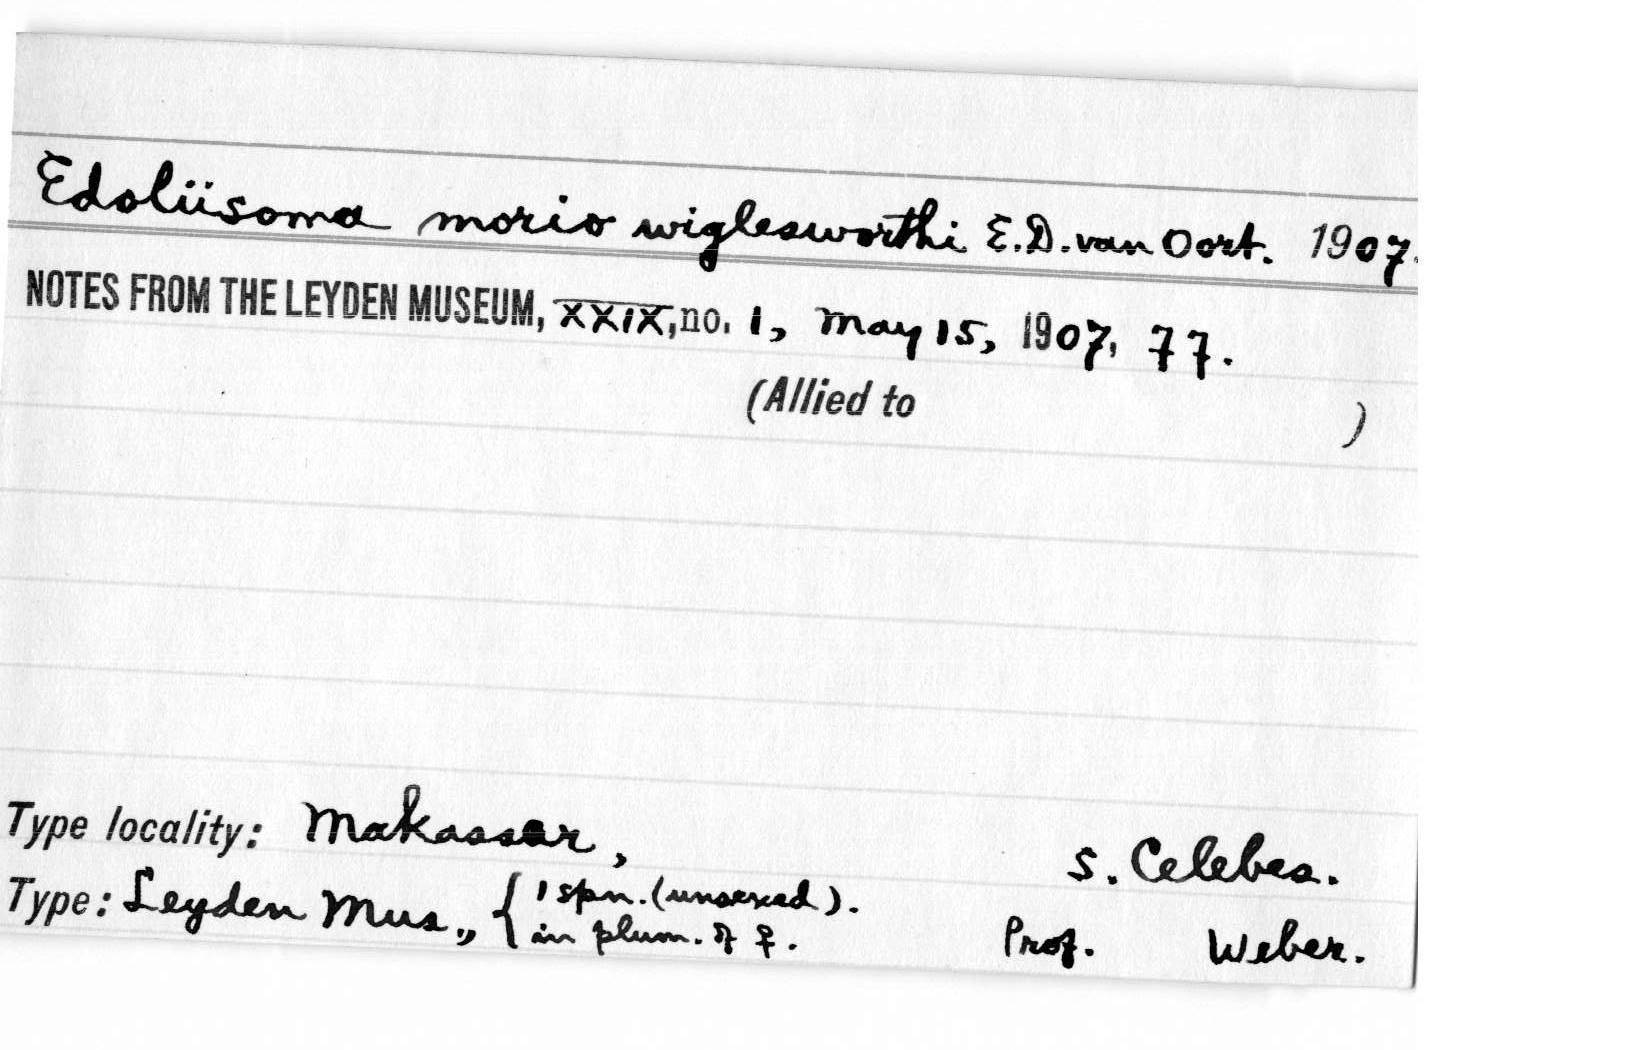 Edoliisoma morio wiglesworthi E.D. van Oort. 1907.
NOTES FROM THE LEYDEN MUSEUM, XXIX, no. 1, May 15, 1907, 77.
(Allied to )
Type locality: Makassar, S. Celebes.
Type: Leyden Mus., { 1 spn. (unsexed).
in plum. of ♀. Prof. Weber.